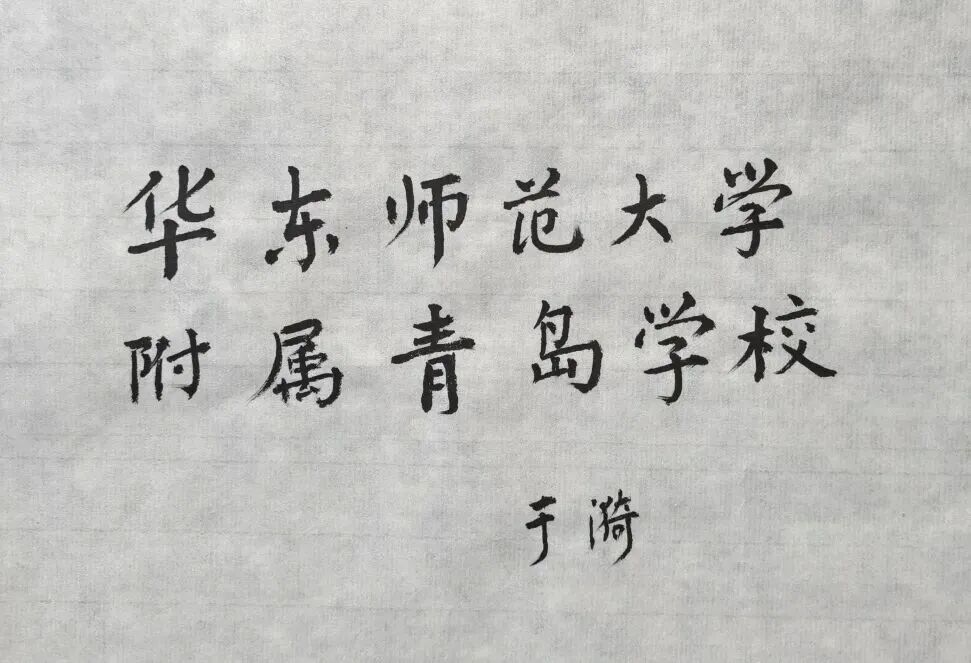 华东师范大学
附属青岛学校
于漪